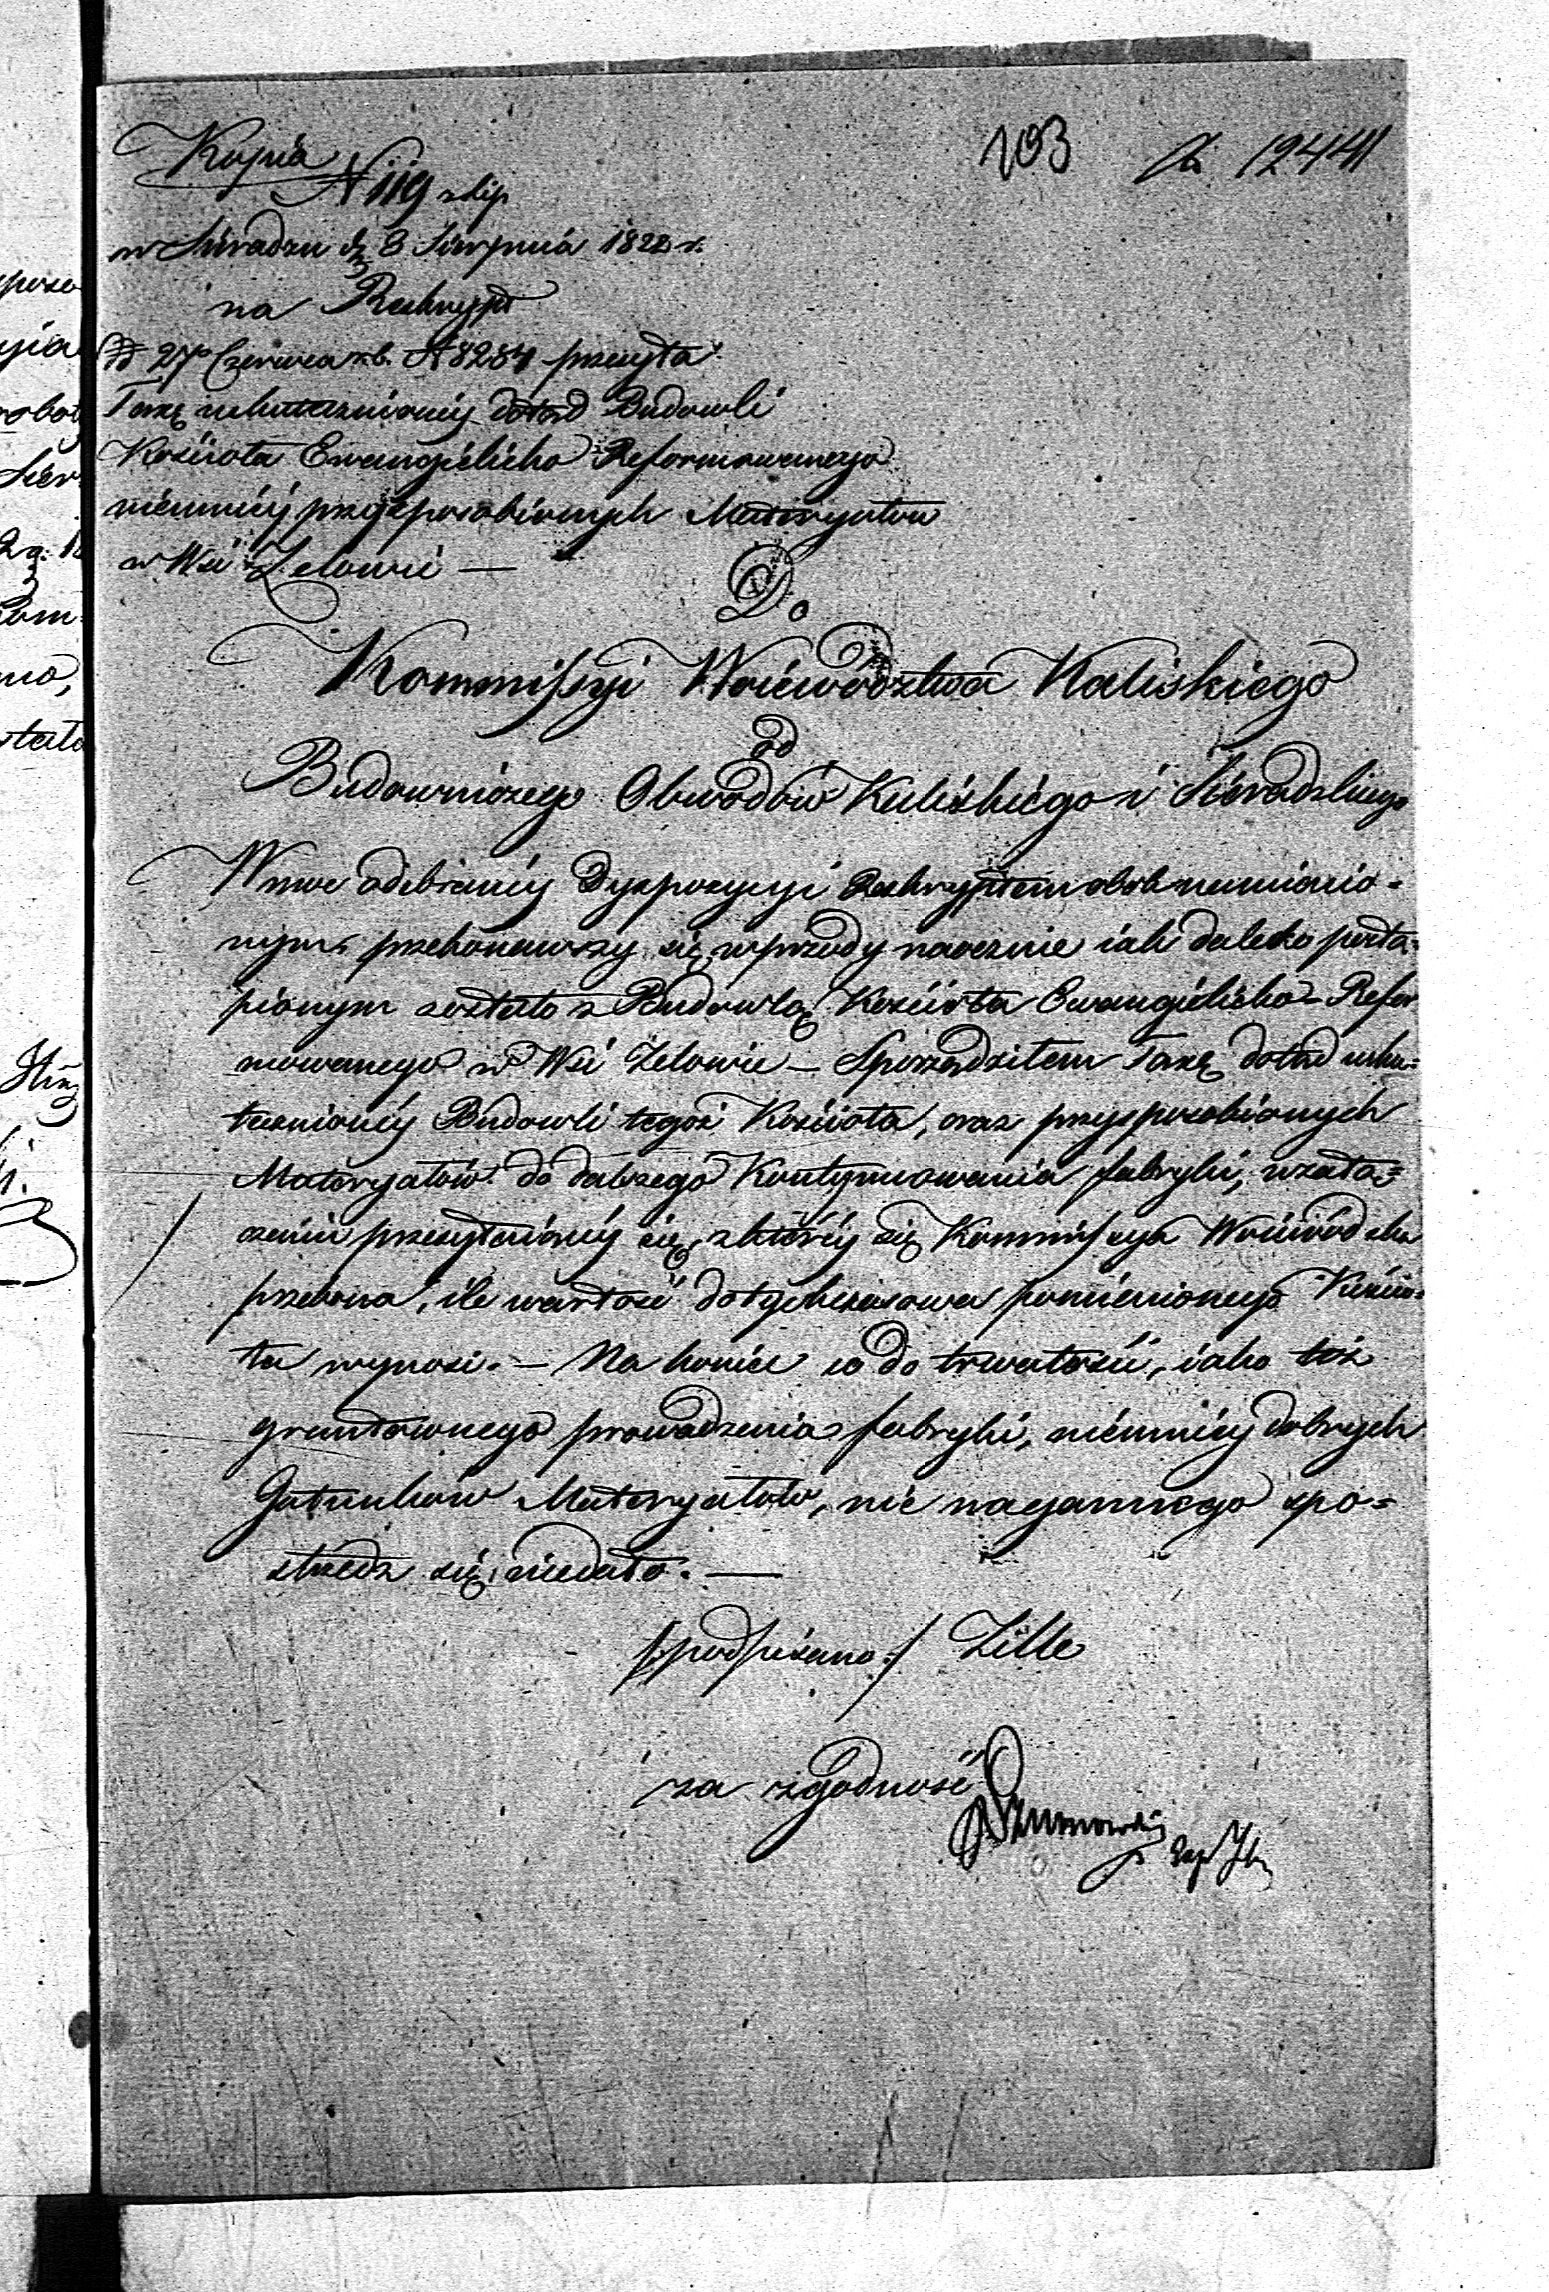 Kopia
193
12441
N 119
w Sieradzu d. 8 Sierpnia 1822 r.
na Reskrypt
27 Czerwca r.b. N 8284 przesyła
Taxę uskutecznioney dotąd Budowli
Kościoła Ewangielicko Reformowanego
niemniéy przysposobionych Materyałów
w Wsi Zelowie —
Do
Kommissyi Woiewództwa Kaliskiego
od
Budowniczego Obwodów Kaliskiégo i Siéradzkiego
W moc odebranéy Dyspozycyi Reskryptem obok namienio=
nym, przekonawszy się wprzódy naocznie iak daleko postą=
pionym zostało z Budowlą Kościoła Ewangielicko-Refor
mowanego w Wsi Zelowie — Sporządziłem Taxę dotąd usku=
tecznionéy Budowli tegoż Kościoła, oraz przysposobionych
Materyałów do dalszego Kontynuowania fabryki, w załą=
czeniu przesyłaiącéy się, z któréy się Kommissya Woiewódzka
przekona, ile wartość dotychczasowa pomienionego Kościo=
ła wynosi. — Na koniec co do trwałości, iako też
gruntownego prowadzenia fabryki, niémniéy dobrych
Gatunków Materyałów, nic nagannego spo=
strzedz się niedało. —
/:podpisano:/ Zille
za zgodność